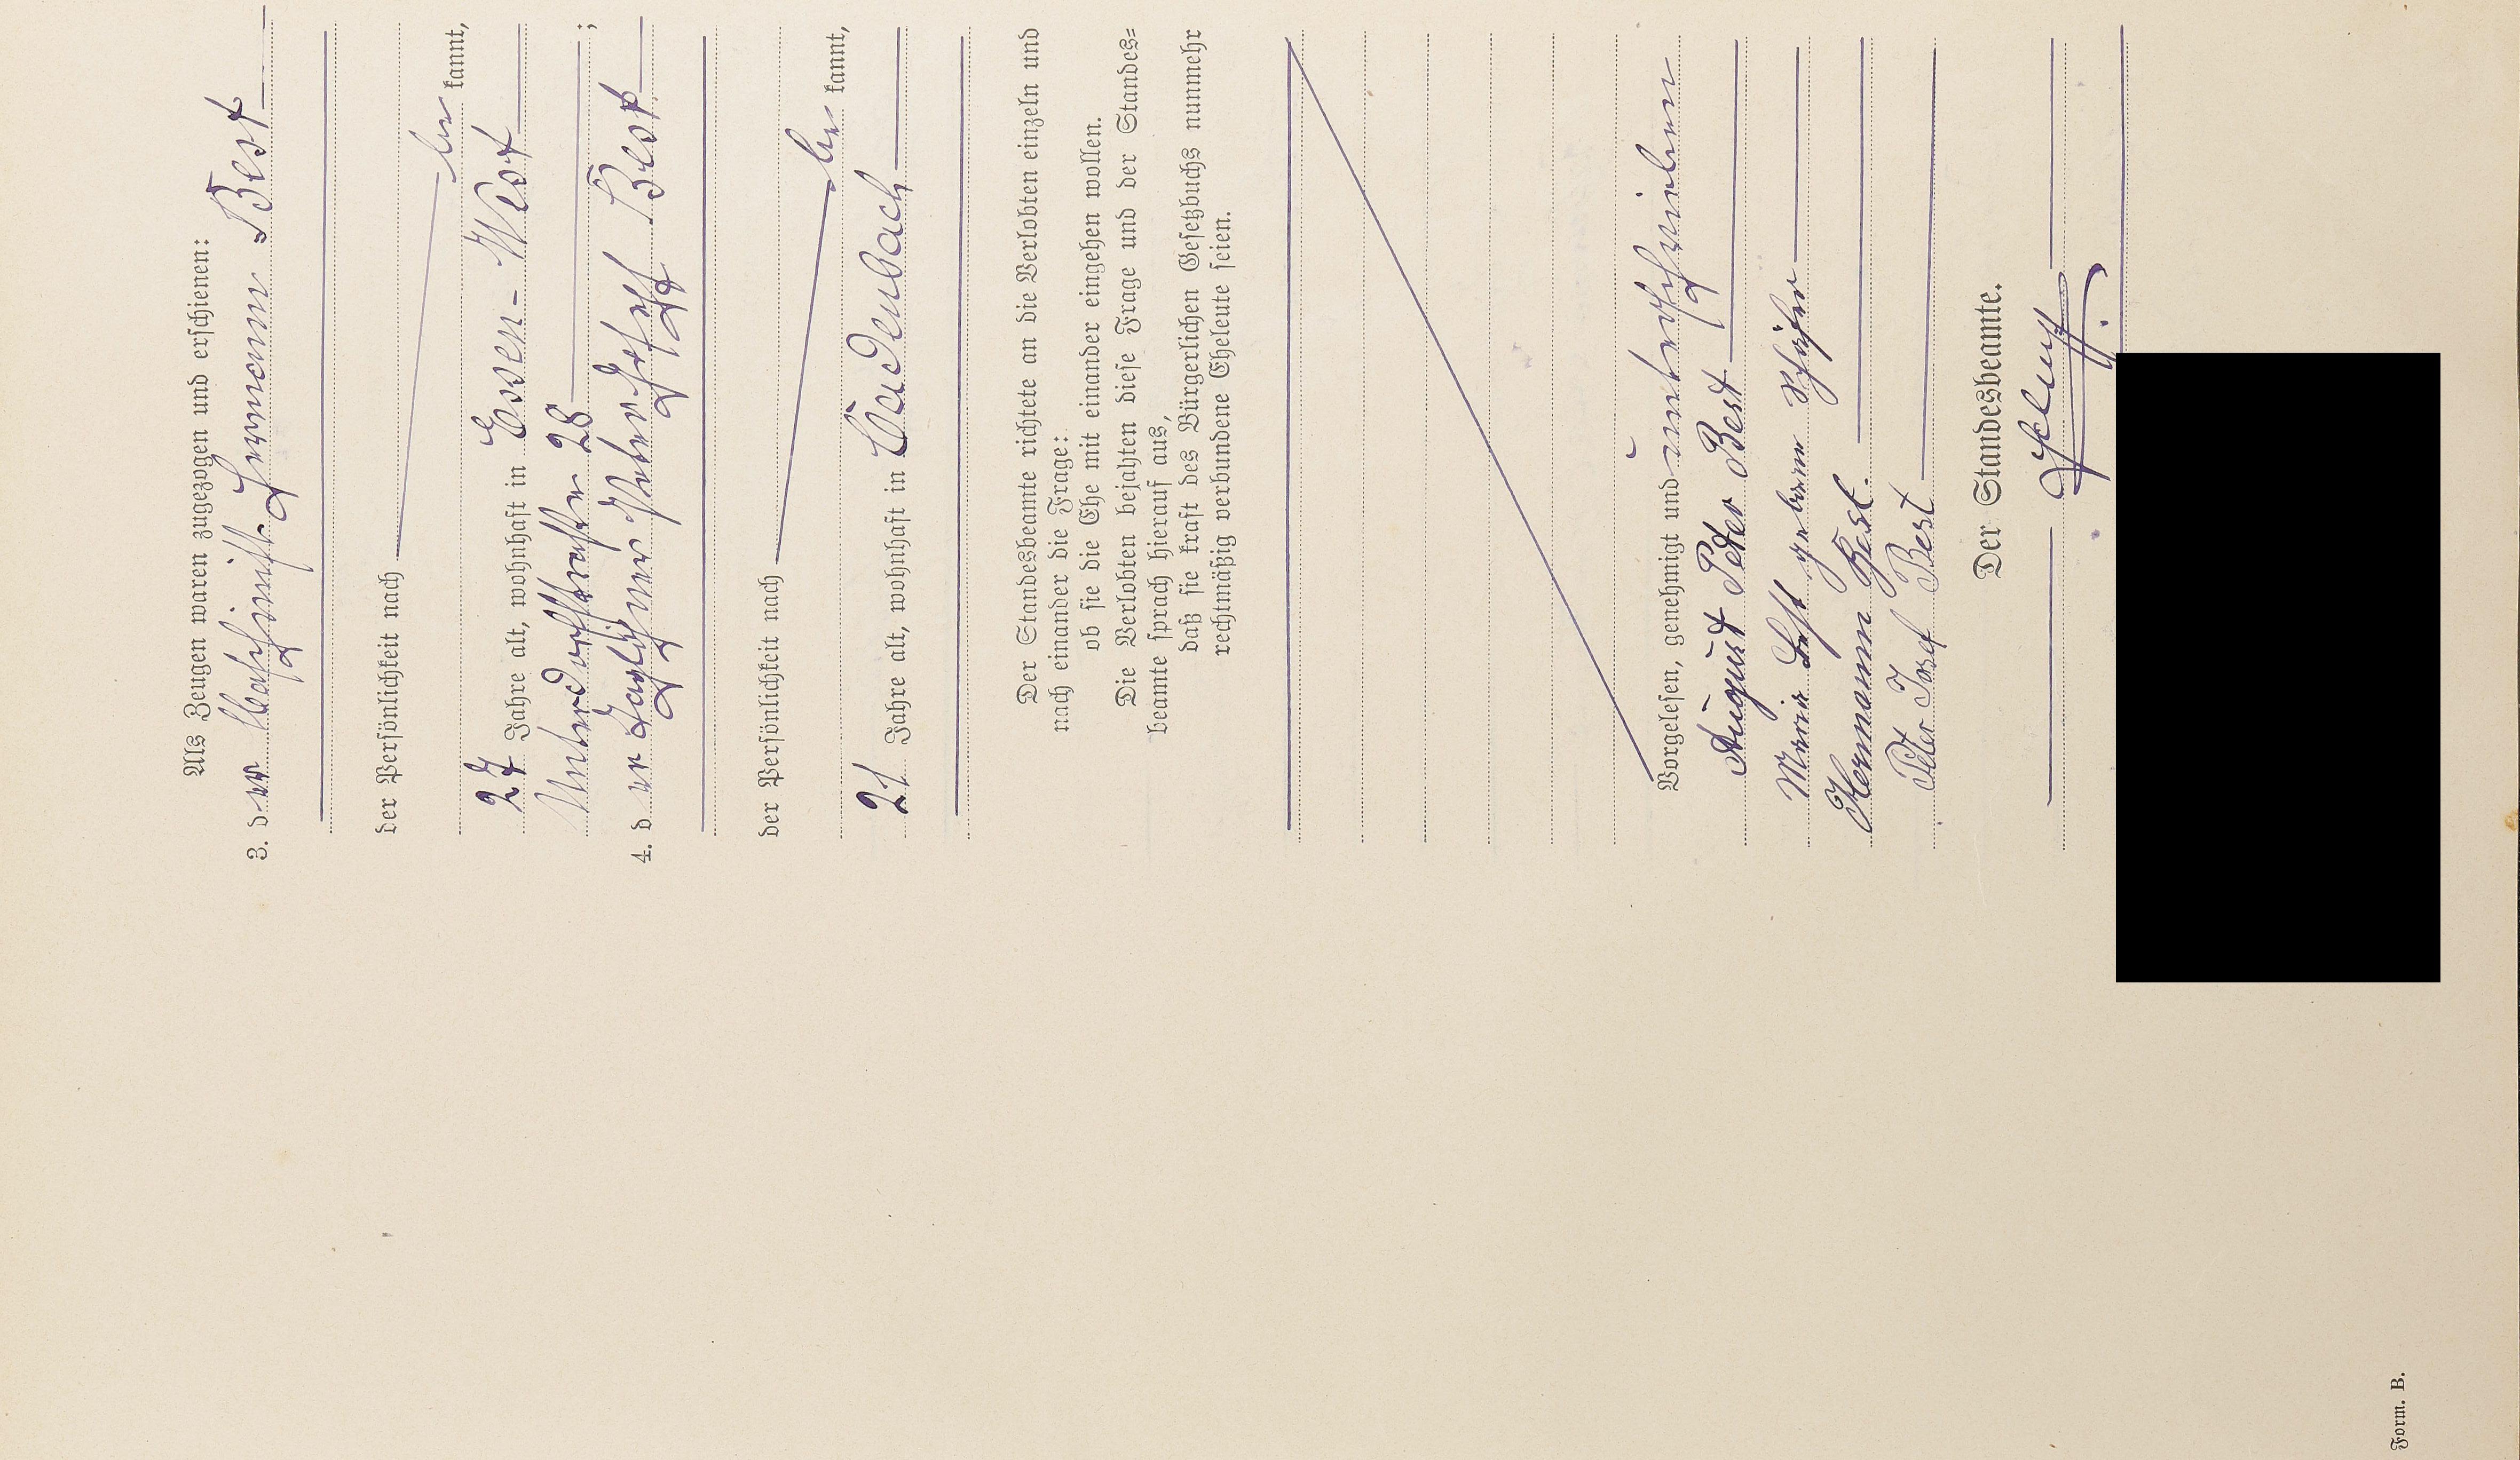 Als Zeugen waren zugezogen und erschienen:
3. der Maschinist Hermann Best
der Persönlichkeit nach
be kannt,
27 Jahre alt, wohnhaft in Essen-West
28 ;
4. der Taglöhner Peter Josef Best
der Persönlichkeit nach
be kannt,
21 Jahre alt, wohnhaft in Caudenbach
Der Standesbeamte richtete an die Verlobten einzeln und
nach einander die Frage:
ob sie die Ehe mit einander eingehen wollen.
Die Verlobten bejahten diese Frage und der Standes-
beamte sprach hierauf aus,
daß sie kraft des Bürgerlichen Gesetzbuchs nunmehr
rechtmäßig verbundene Eheleute seien.
Vorgelesen, genehmigt und unterschrieben
August Peter Best
Maria Best geborene Schäfer
Hermann Best.
Peter Josef Best
Der Standesbeamte.
Form. B.